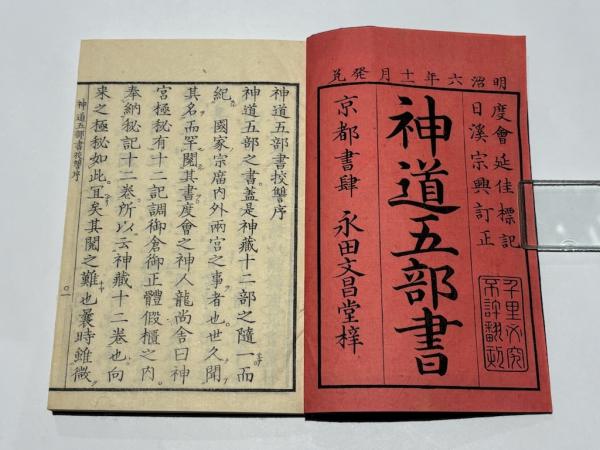 明治六年十一月發兌
度會延佳標記
日溪宗興訂正
神道五部書
京都書肆 永田文昌堂梓
千里必究
不許翻刻
神道五部書挍讐序
神道五部之書蓋是神藏十二部之隨一而
紀 國家宗廟内外兩宮之事者也世久聞
其名而罕閲其書度會之神人龍尚舍曰神
宮極秘有十二記調御倉御正體假櫃之内
奉納秘記十二卷所以云神藏十二卷也向
來之極秘如此冝矣其閲之難也曩時雖微
神道五部書挍讐序 ○一